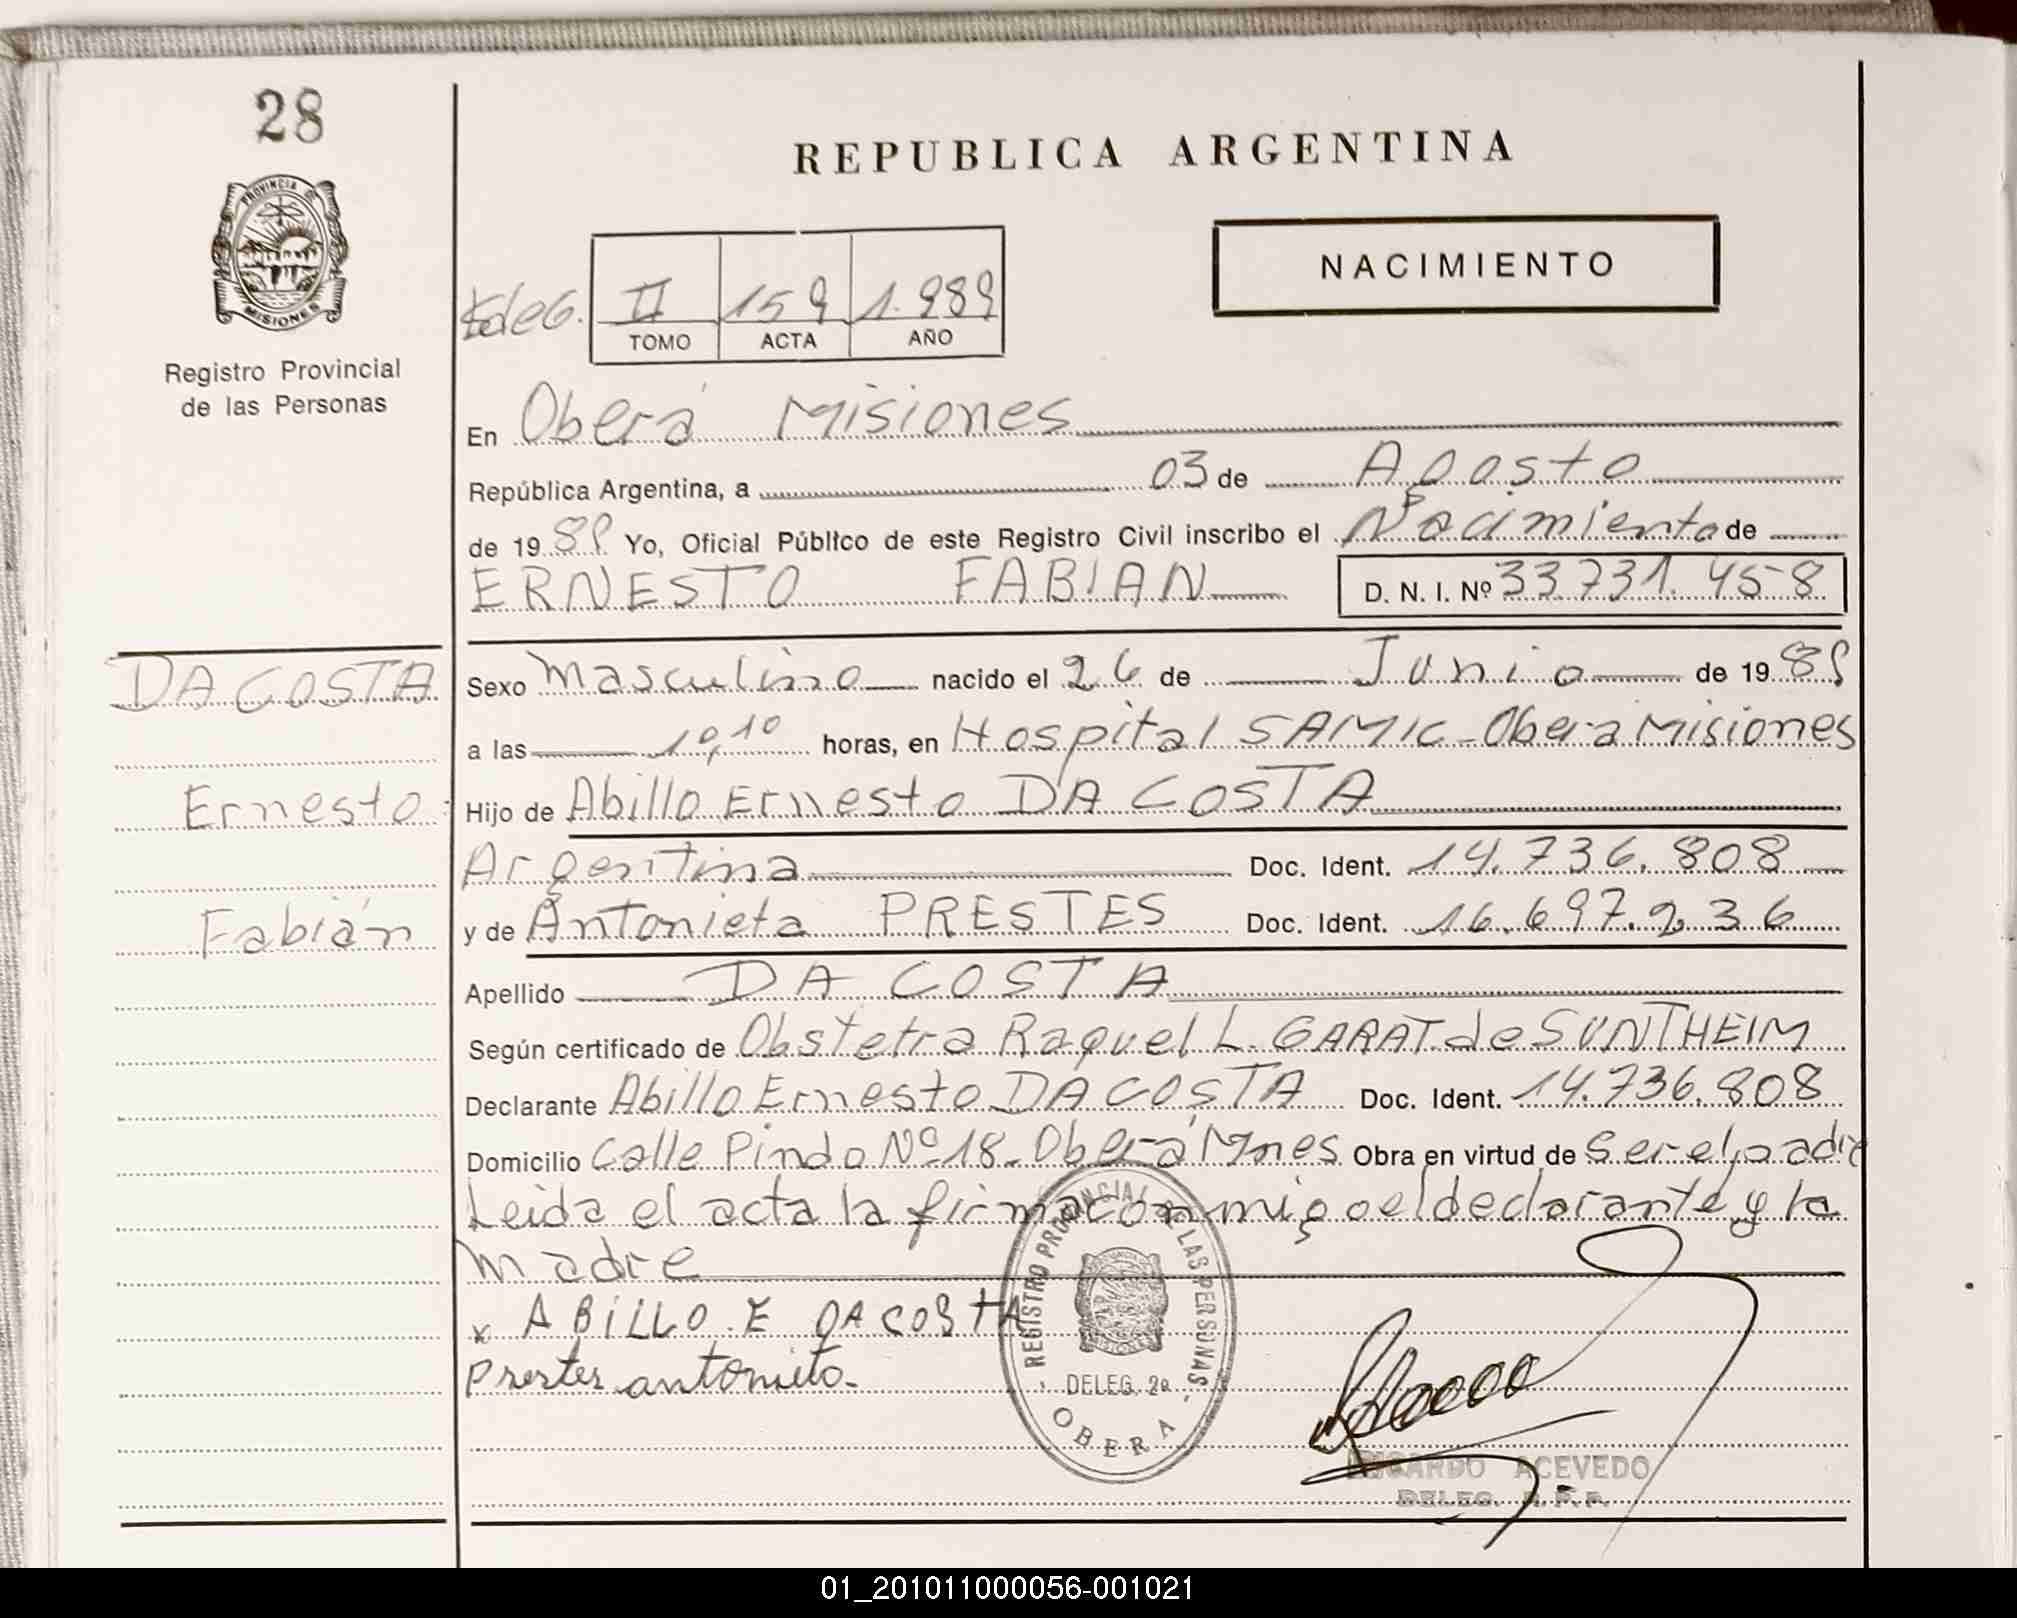 28
REPUBLICA ARGENTINA
PROVINCIA D
MISIONES
Registro Provincial
de las Personas
NACIMIENTO
deleg. II 159 1.989
TOMO ACTA AÑO
En Oberá Misiones
República Argentina, a 03 de Agosto
de 1989 Yo, Oficial Público de este Registro Civil inscribo el Nacimiento de
ERNESTO FABIAN D. N. I. Nº 33.731.458
DA COSTA
Ernesto
Fabián
Sexo Masculino nacido el 26 de Junio de 1989
a las 10,10 horas, en Hospital SAMIC - Oberá Misiones
Hijo de Abillo Ernesto DA COSTA
Argentina Doc. Ident. 14.736.808
y de Antonieta PRESTES Doc. Ident. 16.697.236
Apellido DA COSTA
Según certificado de Obstetra Raquel L. GARAT de SUNTHEIM
Declarante Abillo Ernesto DA COSTA Doc. Ident. 14.736.808
Domicilio Calle Pindo Nº 18 - Oberá Mnes Obra en virtud de Ser el padre
Leida el acta la firma con migo el declarante y la
madre
x ABiLLO.E DA COSTA
Prestes antonieta-
- REGISTRO PROVINCIAL DE LAS PERSONAS -
DELEG. 2a
OBERA
RICARDO ACEVEDO
DELEG. R.P.P.
01_201011000056-001021